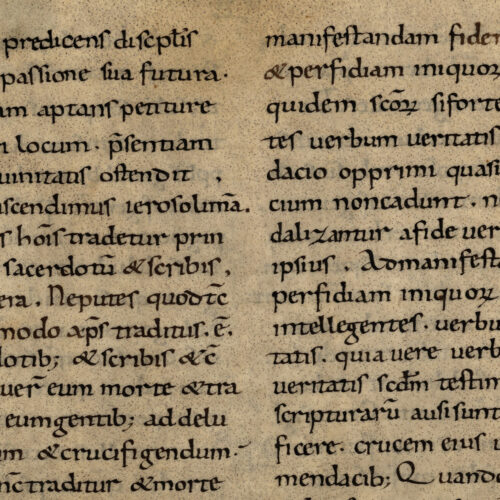 predicens discipt̄is
passione sua futura.
am aptans petiture
locum. p̄sentiam
uinitatis ostendit,
scendimus ierosolimā.
s hoīs tradetur prin
sacerdotū & scribis,
era. Neputes quodtc̄
modo ap̄s traditus. ē.
lotib; & scribis & c̄
uer̄ eum morte & tra
eumgentib; ad delu
m & crucifigendum.
nc̄ traditur & morte
manifestandam fiden
& perfidiam iniquoꝝ
quidem sc̄oꝝ siforte
tes uerbum ueritatis
dacio opprimi quasi
cium noncadunt. n
dalizantur afide uer
ipsius. Admanifesta
perfidiam iniquoꝝ
intellegentes. uerbu
tatis. quia uere uerb
ueritatis scd̄m testim
scripturarū ausisunt
ficere. crucem eius u
mendacib; Quando